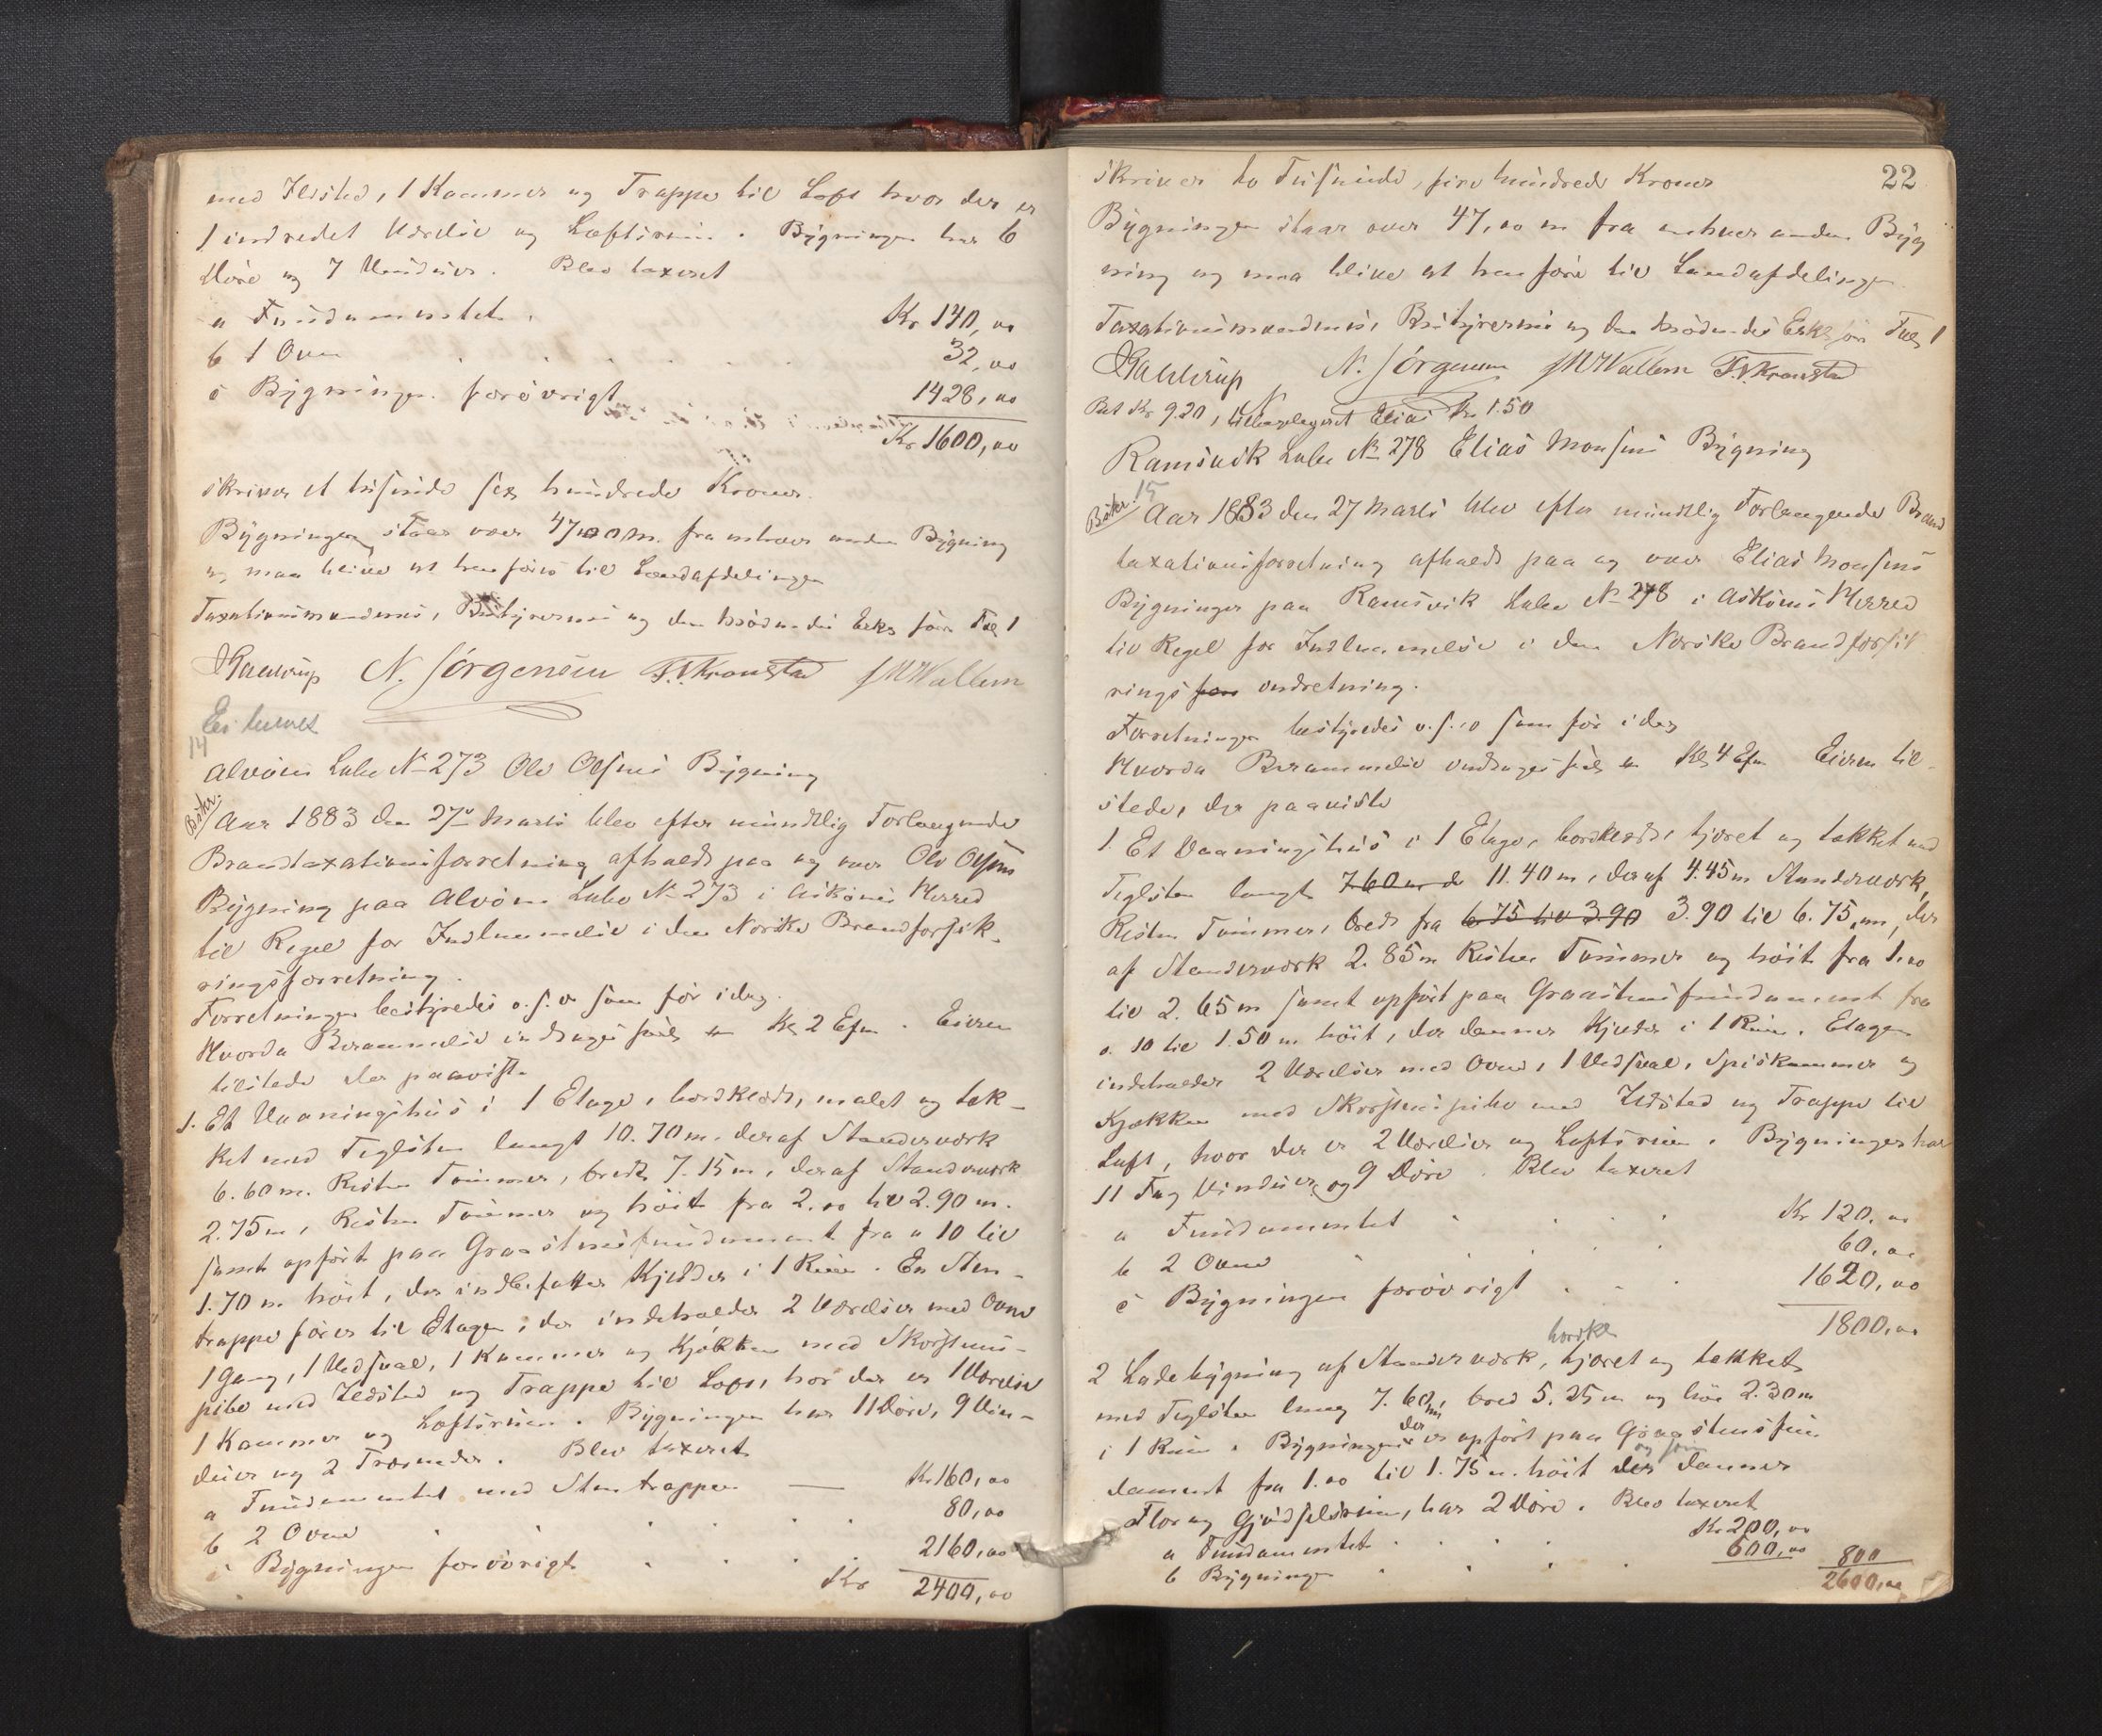 med Ildsted, 1 Kammer og Trappe til Loft hvor der er
1 indredet Værelse og Loftsrum. Bygningen har 6
Döre og 7 Vinduer. Blev taxeret
a Fundamentet. Kr 140,00
b 1 Ovn 32,00
c Bygningen forövrigt 1428,00
Kr 1600,00
skriver et tusinde sex hundrede Kroner.
Bygningen staar over 47,00 m. fra enhver anden Bygning
og maa blive at henföre til Landafdelingen
Taxationsmændenes, Bestyrerens og den mödendes Erkl. som Fol 1
N. Jörgensen F.V. Kronstad J M Wallem
Ei tegnet
14
Alvöen Löbe No 273 Ole Olsens Bygning
Beskr.
Aar 1883 den 27de Marts blev efter mündtlig Forlangende
Brandtaxationsforretning afholdt paa og over Ole Olsens
Bygning paa Alvöen Löbe No 273 i Asköens Herred
til Regel for Indlemmelse i den Norske Brandforsik-
ringsforretning.
Forretningen bestyredes o.s.v. som för idag.
Hvorda Berammelse inddroges sees Kl 2 Efm. Eieren
tilstede der paaviste
1. Et Vaaningshus i 1 Etage, bordklædt, malet og tæk-
ket med Teglsten langt 10.70 m. deraf Standerværk
6.60 m. Resten Tömmer, bredt 7.15 m, deraf Standerværk
2.75 m, Resten Tömmer og höit fra 2.00 til 2.90 m.
samt opfört paa Graastensfundament fra 0 10 til
1.70 m höit, der indbefatter Kjelder i 1 Rum. En Sten-
trappe förer til Etagen, der indeholder 2 Værelser med Ovne
1 Gang, 1 Vedsval, 1 Kammer og Kjökken med Skorstens-
pibe med Ildsted og Trappe til Loft, hvor der er 1 Værelse
1 Kammer og Loftsrum. Bygningen har 11 Döre, 9 Vin-
duer og 2 Træruder. Blev taxeret
a Fundamentet med Stentrappen Kr 160,00
b 2 Ovne 80,00
c Bygningen forövrigt 2160,00
Kr 2400,00
22
skriver to Tusinde, fire hundrede Kroner
Bygningen staar over 47,00 m fra enhver anden Byg
ning og maa blive at henföre til Landafdelingen
Taxationsmændenes, Bestyrerens og den mödendes Erkl. som Fol 1
N. Jörgensen J M Wallem F.V. Kronstad
Bet Kr 9.20, Elias Kr 1.50
Ramsvik Löbe No 278 Elias Monsens Bygning
15
Beskr.
Aar 1883 den 27 Marts blev efter mündtlig Forlangende Brand
taxationsforretning afholdt paa og over Elias Monsens
Bygninger paa Ramsvik Löbe No 278 i Asköens Herred
til Regel for Indlemmelse i den Norske Brandforsik
rings for indretning.
Forretningen bestyredes o.s.v. som för idag
Hvorda Berammelse inddroges sees Kl 4 Efm Eieren til-
stede, der paaviste
1. Et Vaaningshus i 1 Etage, bordklædt, tjæret og tækket med
Teglsten langt 7.60 m d 11.40 m, deraf 4.45 m Standerværk,
Resten Tömmer, bredt fra 6.75 til 3.90 3.90 til 6.75 m, der
af Standerværk 2.85 m Resten Tömmer og höit fra 1.00
til 2.65 m samt opfört paa Graastensfundament fra
0.10 til 1.50 m höit, der danner Kjelder i 1 Rum. Etagen
indeholder 2 Værelser med Ovne, 1 Vedsval, Spiskammer og
Kjøkken med Skorstenspibe med Ildsted og Trappe til
Loft, hvor der er 2 Værelser og Loftsrum. Bygningen har
11 Fag Vinduer og 9 Döre. Blev taxeret
a Fundamentet Kr 120.00
b 2 Ovne 60.00
c Bygningen forövrigt 1620,00
1800,00
bordkl
2 Ladebygning af Standerværk, tjæret og tækket
med Teglsten lang 7.60 m, bred 5.25 m og höi 2.30 m
i 1 Rum. Bygningen der er opfört paa Graastensfun
og som
dament fra 1.00 til 1.75 m. höit der danner
Flor og Gjödselsrum, har 2 Döre. Blev taxeret
a Fundamentet Kr 200,00
b Bygningen 600,00 800
2600,00